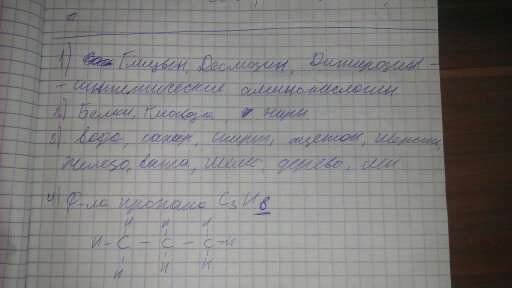 1) Глицин, Десмозин, Дитирозин -
- синтетические аминокислоты
2) Белки, Кислоты, жиры
3) Вода, сахар, спирт, ацетон,
железо, вата, мел, дерево,
4) Ф-ла пропана C3H8
H H H
H - C - C - C - H
H H H